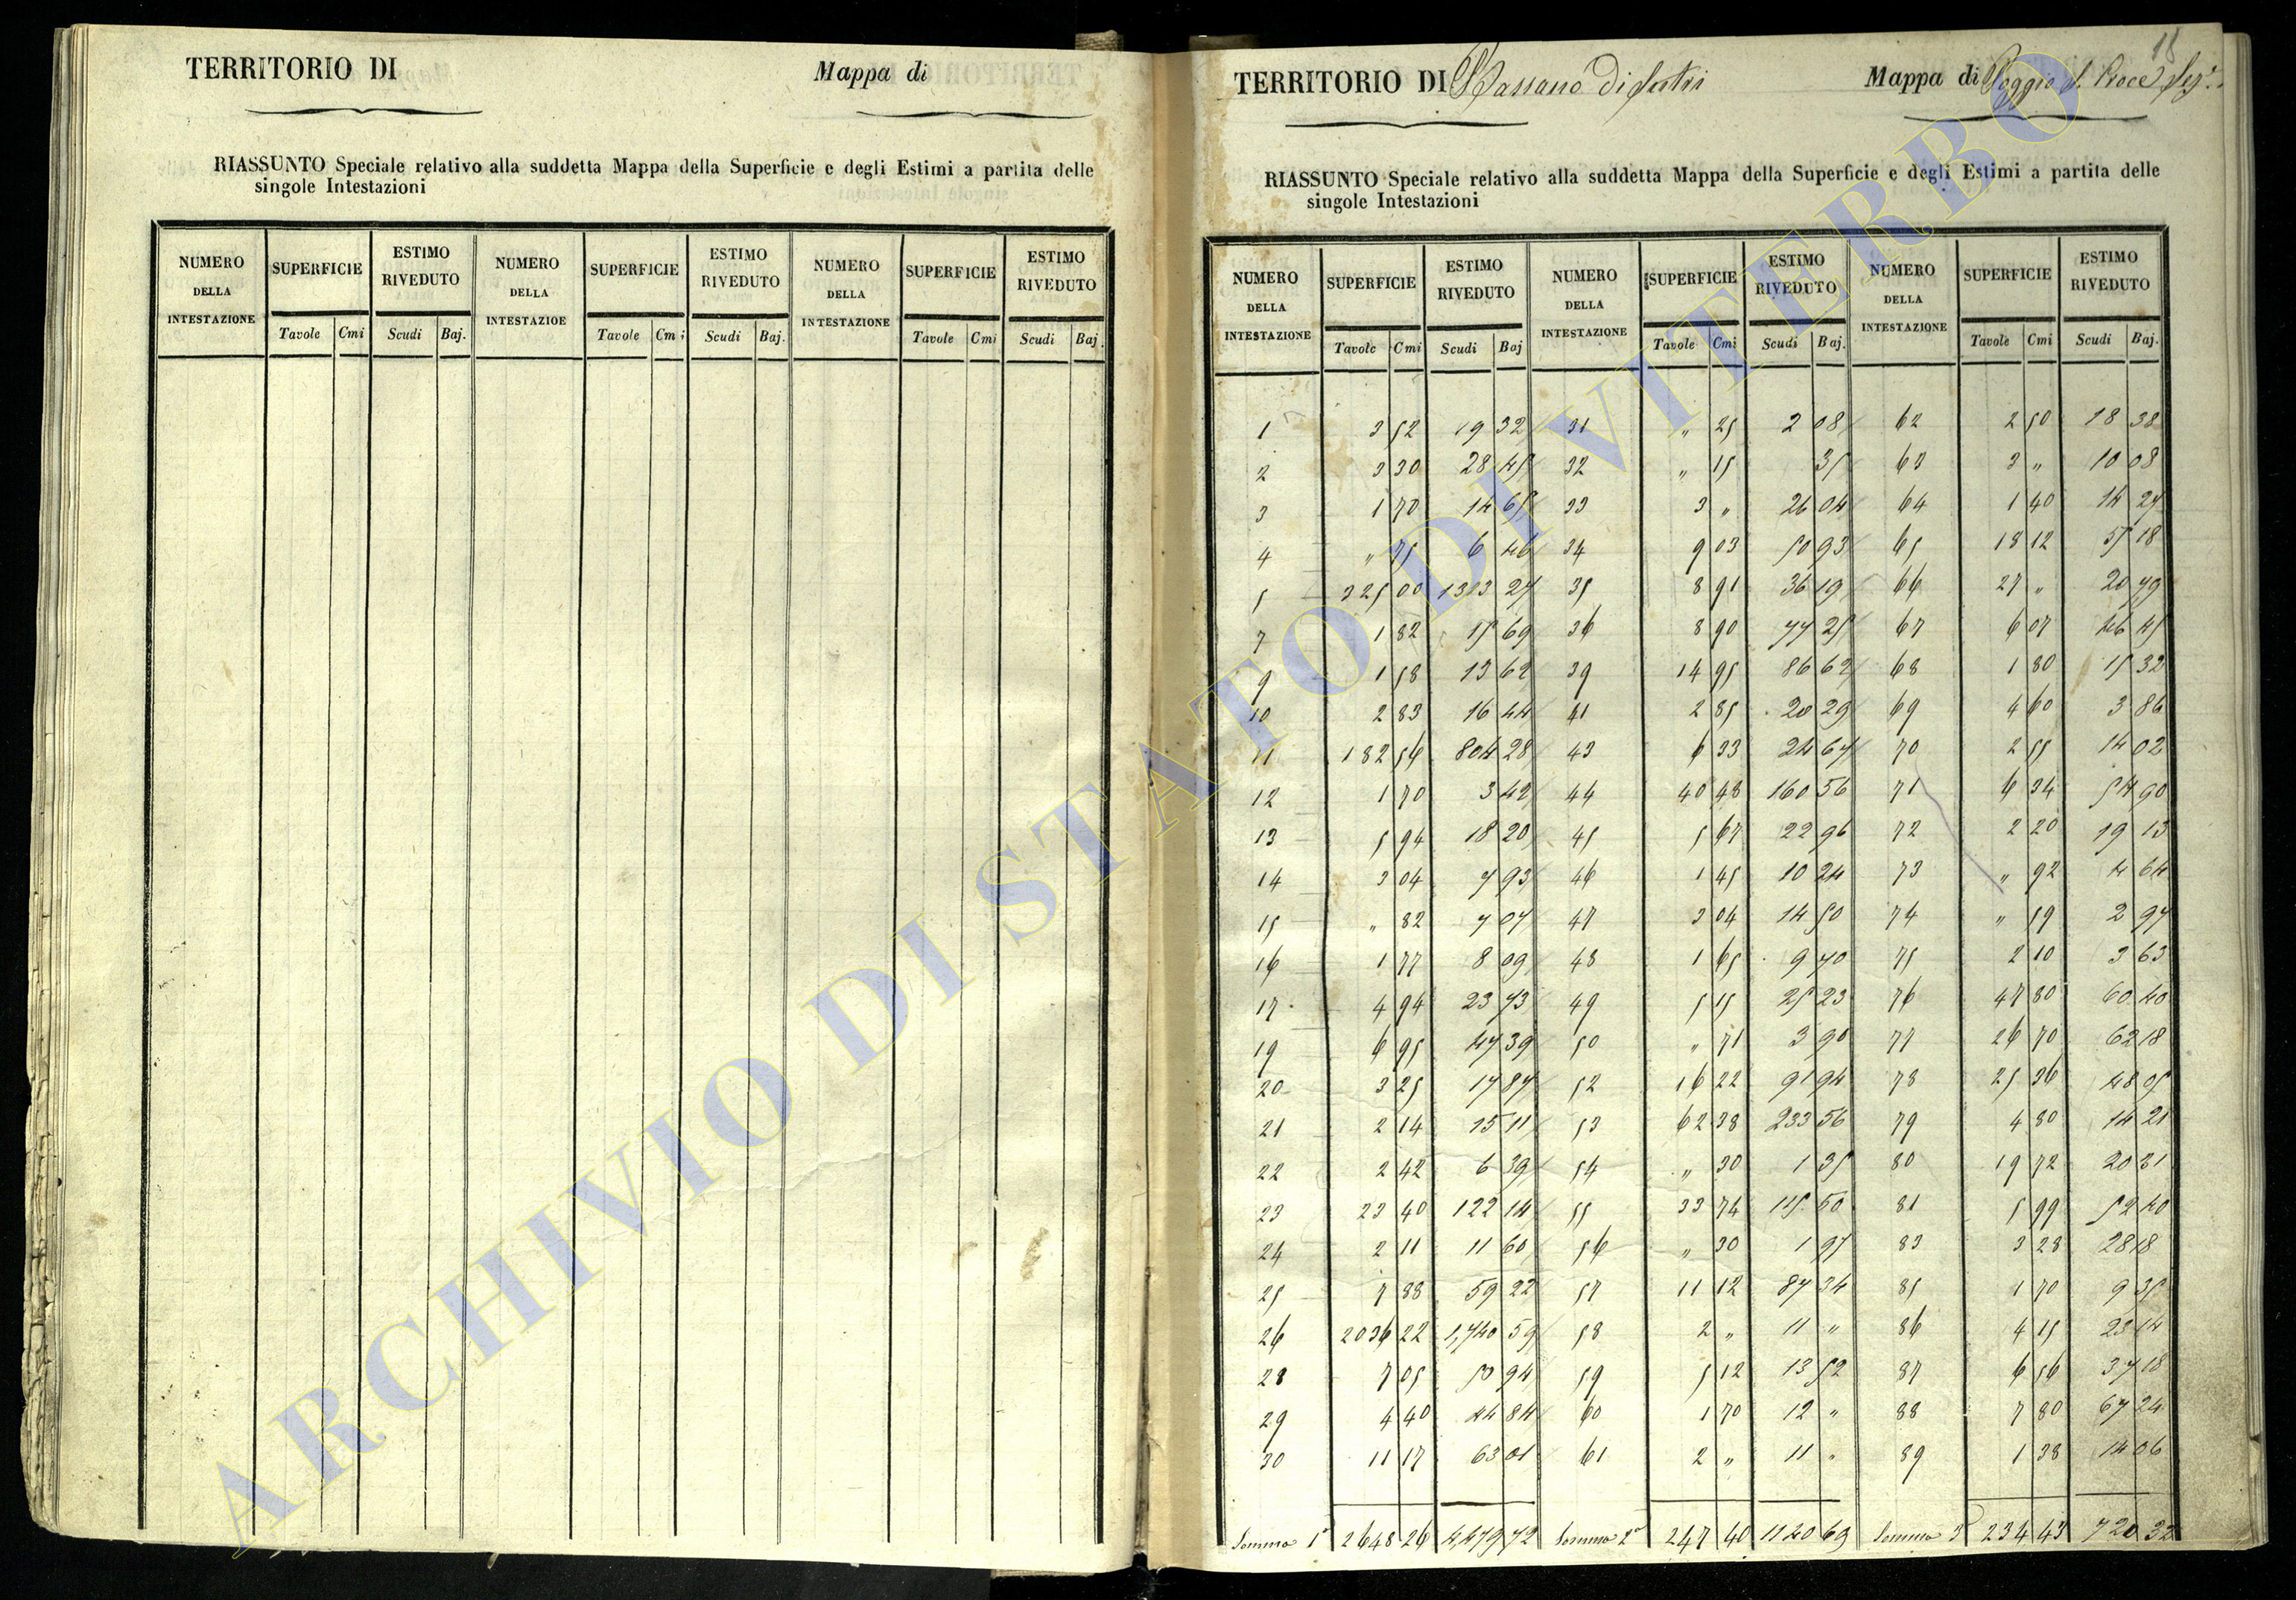 TERRITORIO DI
Mappa di
RIASSUNTO Speciale relativo alla suddetta Mappa della Superficie e degli Estimi a partita delle
singole Intestazioni
NUMERO DELLA INTESTAZIONE SUPERFICIE ESTIMO RIVEDUTO NUMERO DELLA INTESTAZIOE SUPERFICIE ESTIMO RIVEDUTO NUMERO DELLA INTESTAZIONE SUPERFICIE ESTIMO RIVEDUTO
Tavole Cmi Scudi Baj. Tavole Cmi Scudi Baj. Tavole Cmi Scudi Baj.
18
TERRITORIO DI Bassano di Sutri
Mappa di Poggio S. Croce
RIASSUNTO Speciale relativo alla suddetta Mappa della Superficie e degli Estimi a partita delle
singole Intestazioni
NUMERO DELLA INTESTAZIONE SUPERFICIE ESTIMO RIVEDUTO NUMERO DELLA INTESTAZIONE SUPERFICIE ESTIMO RIVEDUTO NUMERO DELLA INTESTAZIONE SUPERFICIE ESTIMO RIVEDUTO
Tavole Cmi Scudi Baj Tavole Cmi Scudi Baj. Tavole Cmi Scudi Baj.
1 3 52 19 32 31 " 25 2 08 62 2 50 18 38
2 3 30 28 45 32 " 15 35 63 3 " 10 08
3 1 70 14 65 33 3 " 26 04 64 1 40 14 27
4 " 75 6 46 34 9 03 50 93 65 18 12 57 18
5 325 00 1313 27 35 8 91 36 19 66 27 " 20 79
7 1 82 15 69 36 8 90 77 25 67 6 07 46 45
9 1 58 13 62 39 14 95 86 62 68 1 80 15 32
10 2 83 16 44 41 2 85 20 29 69 4 60 3 86
11 182 56 804 28 43 6 33 24 67 70 2 55 14 02
12 1 70 3 42 44 40 48 160 56 71 6 34 54 90
13 5 94 18 20 45 5 67 22 96 72 2 20 19 13
14 3 04 7 93 46 1 45 10 24 73 " 92 4 64
15 " 82 7 07 47 3 04 14 50 74 " 59 2 97
16 1 77 8 09 48 1 65 9 70 75 2 10 3 63
17 4 94 23 73 49 5 15 25 23 76 47 80 60 40
19 6 95 47 39 50 " 71 3 90 77 26 70 62 18
20 3 25 17 87 52 16 22 91 94 78 25 36 48 05
21 2 14 15 11 53 62 38 233 56 79 4 80 14 21
22 2 42 6 39 54 " 30 1 35 80 19 72 20 31
23 23 40 122 14 55 33 74 115 50 81 5 99 52 40
24 2 11 11 60 56 " 30 1 97 83 3 28 28 18
25 7 88 59 22 57 11 12 87 34 85 1 70 9 35
26 2036 22 1,740 59 58 2 " 11 " 86 4 15 23 14
28 7 05 50 94 59 5 12 13 52 87 6 56 37 18
29 4 40 44 84 60 1 70 12 " 88 7 80 67 24
30 11 17 63 01 61 2 " 11 " 89 1 38 14 06
Somma 1ª 2648 26 4,479 72 Somma 2ª 247 40 1140 69 Somma 3ª 234 43 720 32
ARCHIVIO DI STATO DI VITERBO